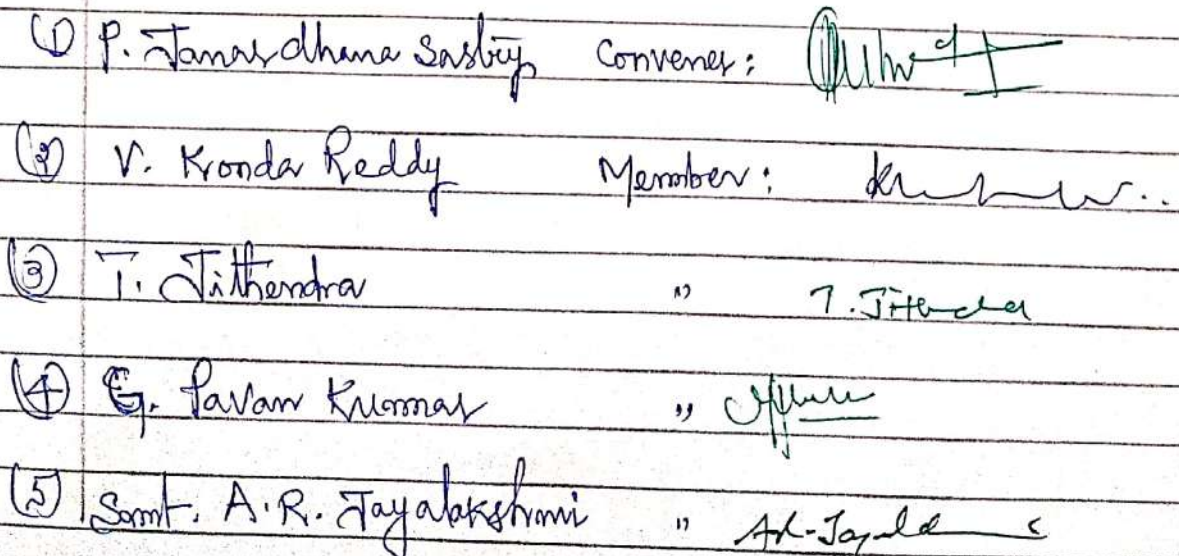 ① P. Janardhana Sastry Convener:
② V. Konda Reddy Member:
③ T. Jithendra " T. Jitendra
④ G. Pavan Kumar "
⑤ Smt. A.R. Jayalakshmi "